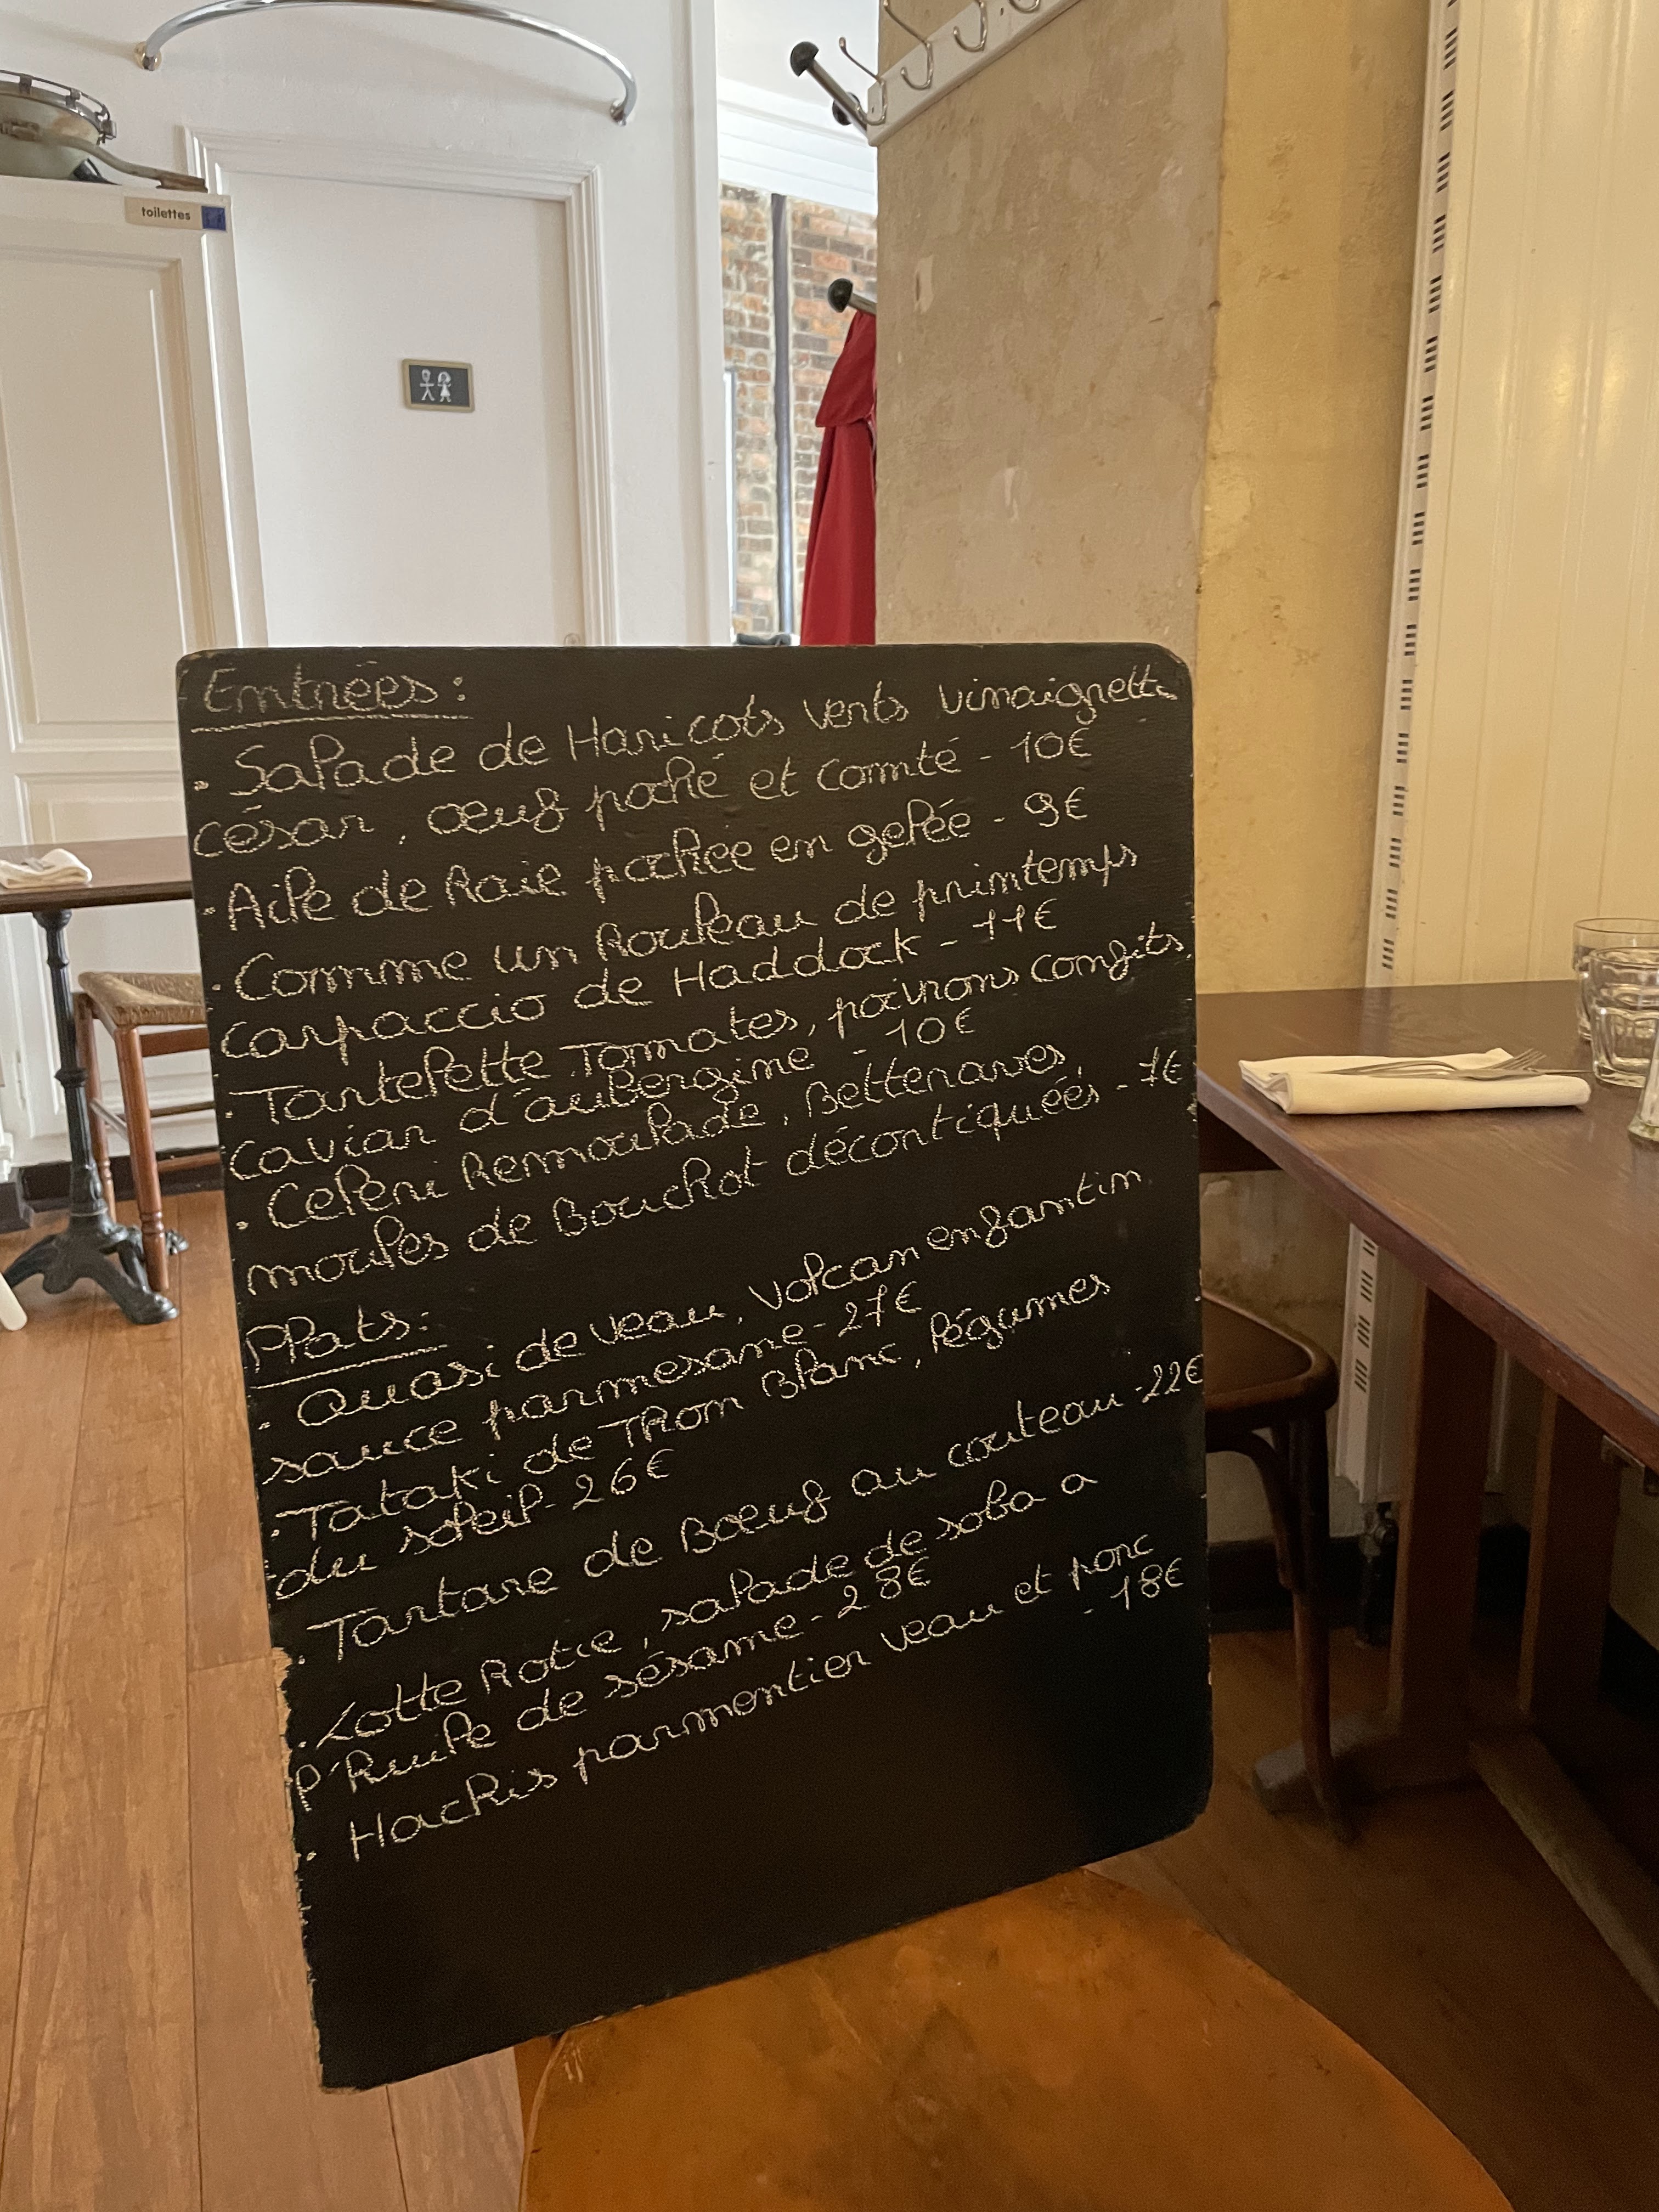 toilettes
Entrées:
. Salade de Haricots verts vinaigrette
césar, œuf poché et Comté - 10€
. Aile de Raie pochée en gelée - 9€
. Comme un Rouleau de printemps
carpaccio de Haddock - 11€
. Tartelette Tomates, poivrons confits,
caviar d'aubergine - 10€
. Céleri Remoulade, Betteraves,
moules de Bouchot décortiquées - 7€
Plats:
. Quasi de veau, volcan enfantin,
sauce parmesane - 27€
. Tataki de Thon Blanc, légumes
du soleil - 26€
. Tartare de Bœuf au couteau - 22€
. Lotte Rotie, salade de soba a
l'Huile de sésame - 28€
. Hachis parmentier veau et porc
- 18€